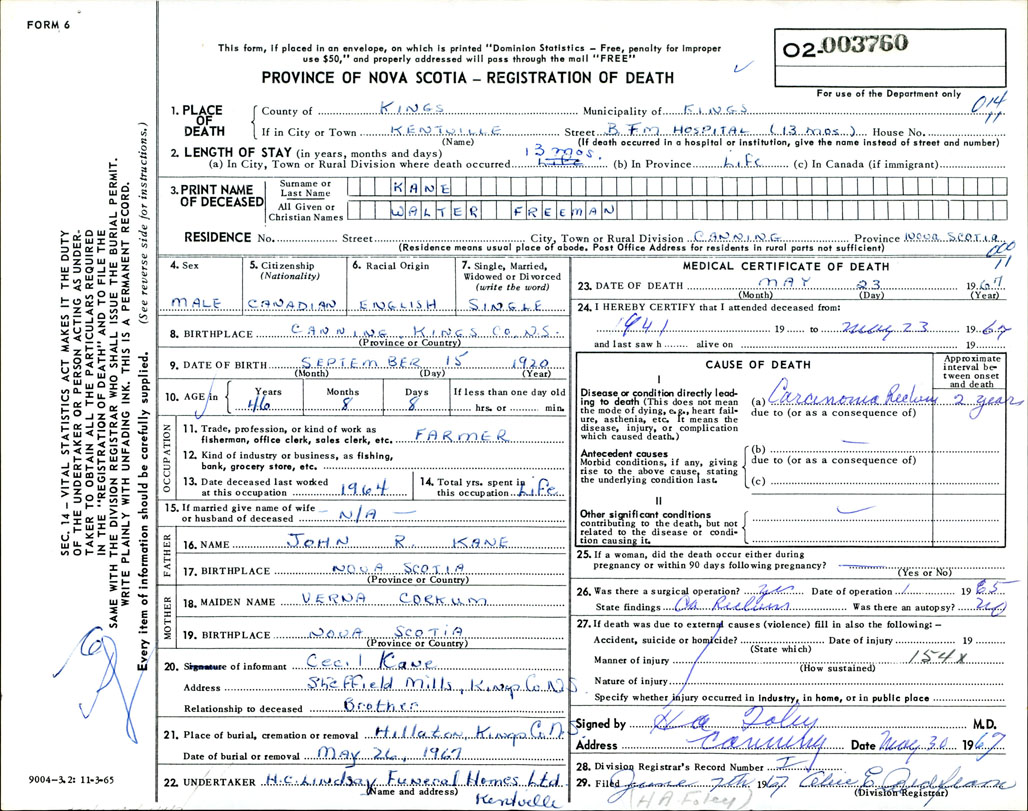 FORM 6
This form, if placed in an envelope, on which is printed "Dominion Statistics – Free, penalty for improper
use $50," and properly addressed will pass through the mail "FREE"
PROVINCE OF NOVA SCOTIA – REGISTRATION OF DEATH
02-003760
For use of the Department only
014
11
1. PLACE OF DEATH
County of KINGS Municipality of KINGS
If in City or Town KENTVILLE Street BFM HOSPITAL (13 MOS.) House No.
(Name) (If death occurred in a hospital or institution, give the name instead of street and number)
2. LENGTH OF STAY (in years, months and days) 13 mos.
(a) In City, Town or Rural Division where death occurred Life (b) In Province Life (c) In Canada (if immigrant)
3. PRINT NAME OF DECEASED
Surname or Last Name KANE
All Given or Christian Names WALTER FREEMAN
RESIDENCE No. Street City, Town or Rural Division CANNING Province NOVA SCOTIA
(Residence means usual place of abode. Post Office Address for residents in rural parts not sufficient)
000
11
4. Sex MALE
5. Citizenship (Nationality) CANADIAN
6. Racial Origin ENGLISH
7. Single, Married, Widowed or Divorced (write the word) SINGLE
8. BIRTHPLACE CANNING, KINGS CO. N.S.
(Province or Country)
9. DATE OF BIRTH SEPTEMBER 15 1920
(Month) (Day) (Year)
10. AGE in Years 46 Months 8 Days 8 If less than one day old hrs. or min.
OCCUPATION
11. Trade, profession, or kind of work as fisherman, office clerk, sales clerk, etc. FARMER
12. Kind of industry or business, as fishing, bank, grocery store, etc.
13. Date deceased last worked at this occupation 1964
14. Total yrs. spent in this occupation Life
15. If married give name of wife or husband of deceased – N/A –
FATHER
16. NAME JOHN R. KANE
17. BIRTHPLACE NOVA SCOTIA
(Province or Country)
MOTHER
18. MAIDEN NAME VERNA CORKUM
19. BIRTHPLACE NOVA SCOTIA
(Province or Country)
20. Signature of informant Cecil Kane
Address Sheffield Mills, Kings Co. N.S.
Relationship to deceased Brother
21. Place of burial, cremation or removal Hillaton, Kings Co. N.S.
Date of burial or removal MAY 26, 1967
22. UNDERTAKER H.C. Lindsay Funeral Homes Ltd.
(Name and address) Kentville
MEDICAL CERTIFICATE OF DEATH
23. DATE OF DEATH MAY 23 1967
(Month) (Day) (Year)
24. I HEREBY CERTIFY that I attended deceased from:
1941 19 to May 23 1967
and last saw h alive on 19
CAUSE OF DEATH
Approximate interval between onset and death
I
Disease or condition directly leading to death (This does not mean the mode of dying, e.g., heart failure, asthenia, etc. It means the disease, injury, or complication which caused death.)
(a) Carcinoma Rectum 2 years
due to (or as a consequence of)
Antecedent causes
Morbid conditions, if any, giving rise to the above cause, stating the underlying condition last.
(b)
due to (or as a consequence of)
(c)
II
Other significant conditions
contributing to the death, but not related to the disease or condition causing it.
25. If a woman, did the death occur either during
pregnancy or within 90 days following pregnancy?
(Yes or No)
26. Was there a surgical operation? yes Date of operation 1965
State findings Ca Rectum Was there an autopsy? no
27. If death was due to external causes (violence) fill in also the following: –
Accident, suicide or homicide? Date of injury 19
(State which)
Manner of injury 154X
(How sustained)
Nature of injury
Specify whether injury occurred in industry, in home, or in public place
Signed by H A Foley M.D.
Address Canning Date May 30 1967
28. Division Registrar's Record Number
29. Filed June 7th 1967
(Division Registrar)
(H A Foley)
SEC. 14 – VITAL STATISTICS ACT MAKES IT THE DUTY
OF THE UNDERTAKER OR PERSON ACTING AS UNDER-
TAKER TO OBTAIN ALL THE PARTICULARS REQUIRED
IN THE "REGISTRATION OF DEATH" AND TO FILE THE
SAME WITH THE DIVISION REGISTRAR WHO SHALL ISSUE THE BURIAL PERMIT.
WRITE PLAINLY WITH UNFADING INK. THIS IS A PERMANENT RECORD.
Every item of information should be carefully supplied. (See reverse side for instructions.)
9004-3.2: 11-3-65